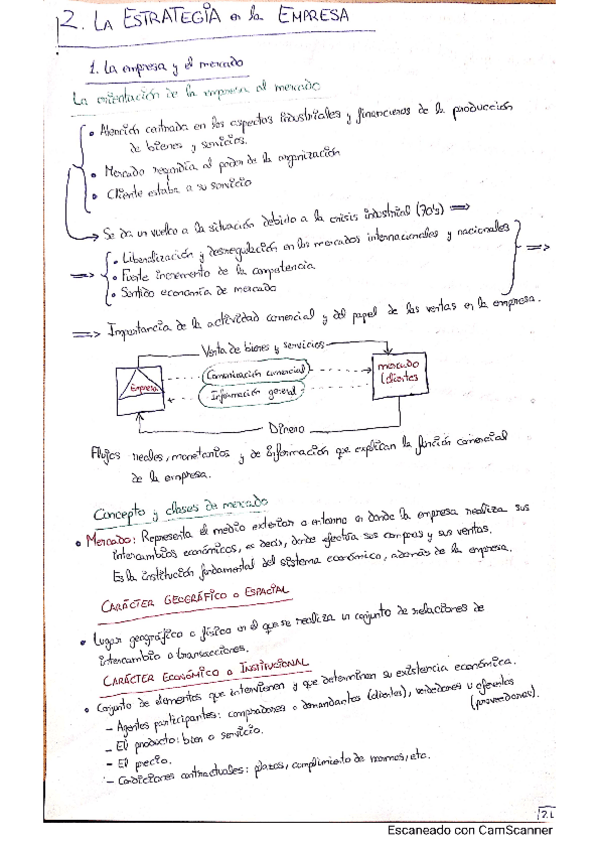 2. LA ESTRATEGIA en la EMPRESA
1. La empresa y el mercado
La orientación de la empresa al mercado
• Atención centrada en los aspectos industriales y financieros de la producción
de bienes y servicios.
• Mercado respondía al poder de la organización
• Cliente estaba a su servicio
→ Se da un vuelco a la situación debido a la crisis industrial (70's) ⇒
⇒ • Liberalización y desregulación en los mercados internacionales y nacionales ⇒
• Fuerte incremento de la competencia
• Sentido economía de mercado
⇒ Importancia de la actividad comercial y del papel de las ventas en la empresa.
Venta de bienes y servicios
Comunicación comercial
Empresa
mercado
(clientes
Información general
Dinero
Flujos reales, monetarios y de información que explican la función comercial
de la empresa.
Concepto y clases de mercado
• Mercado: Representa el medio exterior o entorno en donde la empresa realiza sus
intercambios económicos, es decir, donde efectúa sus compras y sus ventas.
Es la institución fundamental del sistema económico, además de la empresa.
CARÁCTER GEOGRÁFICO o ESPACIAL
• Lugar geográfico o físico en el que se realiza un conjunto de relaciones de
intercambio o transacciones.
CARÁCTER ECONÓMICO o INSTITUCIONAL
• Conjunto de elementos que intervienen y que determinen su existencia económica.
- Agentes participantes: compradores o demandantes (clientes), vendedores u oferentes
(proveedores).
- El producto: bien o servicio.
- El precio.
- Condiciones contractuales: plazos, cumplimiento de normas, etc.
Escaneado con CamScanner